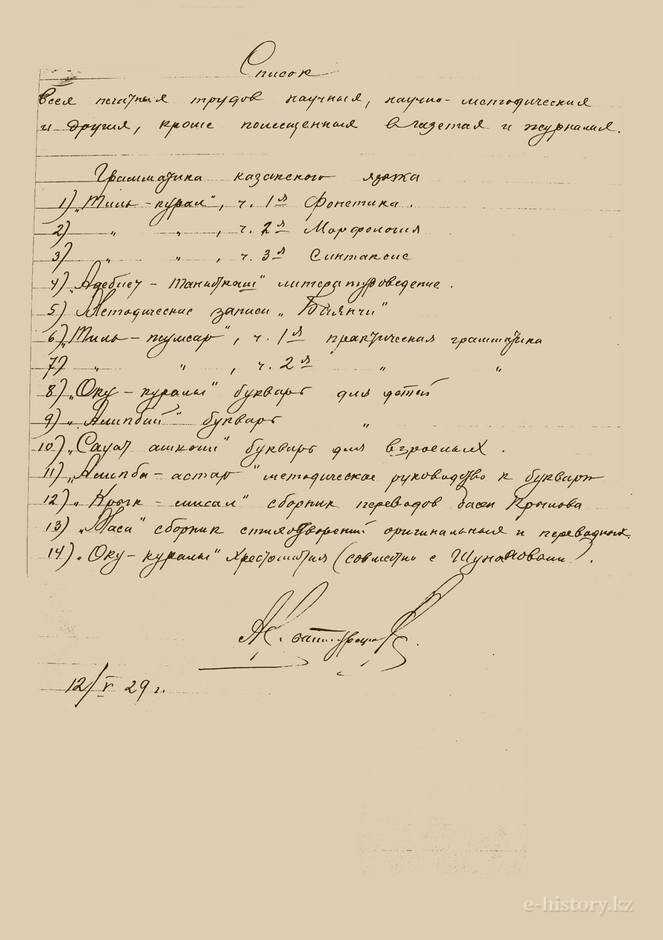 Список
Всех печатных трудов научных, научно-методических
и других, кроме помещенных в газетах и журналах.
Грамматика казакского языка
1) „Тиль-курал", ч. 1я Фонетика.
2) „ „ , ч. 2я Морфология
3) „ „ , ч. 3я Синтаксис
4) „Адебиет-таниткыш" литературоведение.
5) Методические записи „Баянчи"
6) „Тиль-жумсар", ч. 1я практическая грамматика
7) „ „ , ч. 2я „ „
8) „Оку-куралы" букварь для детей
9) „Алипбий" букварь „
10) „Сауат ашкыш" букварь для взрослых.
11) „Алипби-астар" методическое руководство к букварю
12) „Крык-мисал" сборник переводов басен Крылова
13) „Маса" сборник стихотворений оригинальных и переводных.
14) „Оку-куралы" хрестоматия (совместно с Шонановым).
12/V 29 г.
e-history.kz